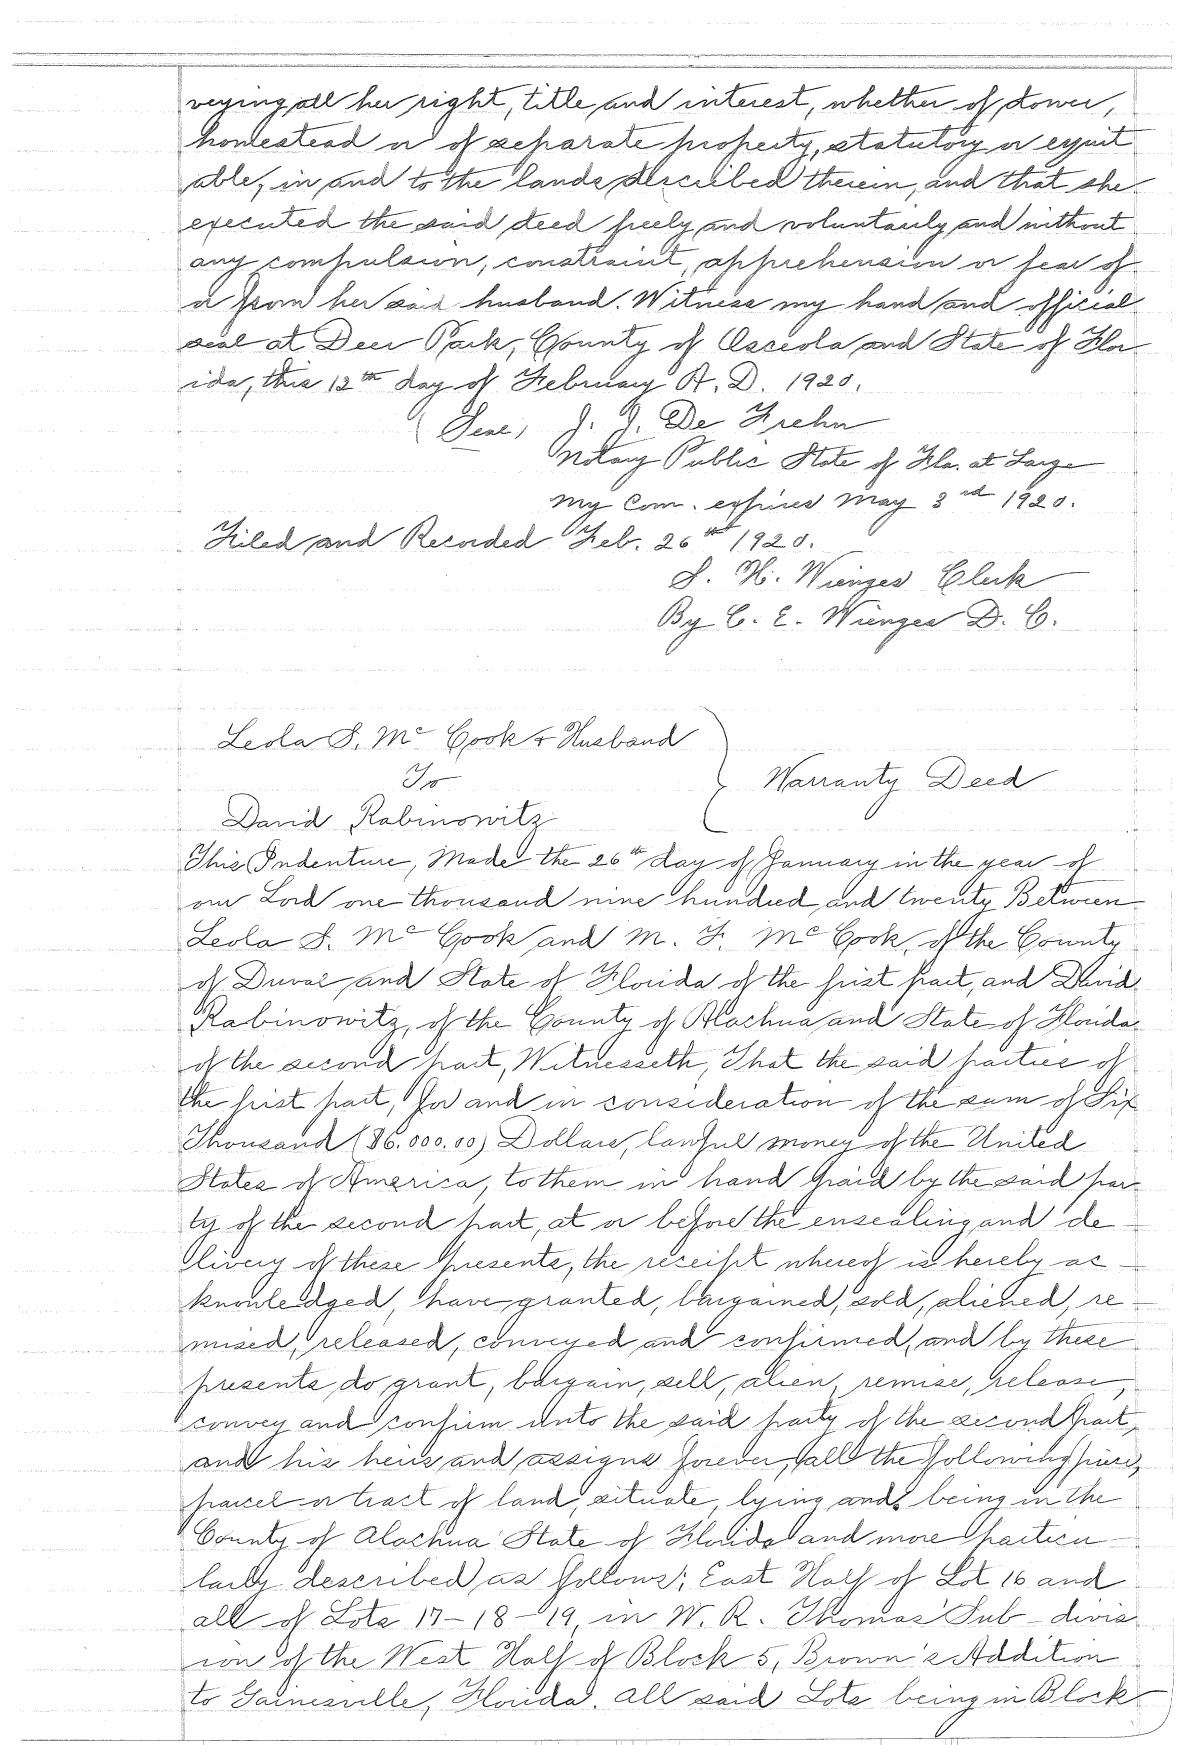 veying all her right, title and interest, whether of dower,
homestead or of separate property, statutory or equit
able, in and to the lands described therein, and that she
executed the said deed freely and voluntarily and without
any compulsion, constraint, apprehension or fear of
or from her said husband. Witness my hand and official
seal at Deer Park, County of Osceola and State of Flor
ida, this 12th day of February A. D. 1920.
(Seal) J. J. De Frehn
Notary Public State of Fla. at Large
My Com. expires May 3rd 1920.
Filed and Recorded Feb. 26th 1920.
S. H. Wienges Clerk
By C. E. Wienges D. C.
Leola S. Mc Cook & Husband
To
Warranty Deed
David Rabinowitz
This Indenture, Made the 26th day of January in the year of
our Lord one thousand nine hundred and twenty Between
Leola S. Mc Cook and M. F. Mc Cook, of the County
of Duval and State of Florida of the first part, and David
Rabinowitz, of the County of Alachua and State of Florida
of the second part, Witnesseth, That the said parties of
the first part, for and in consideration of the sum of Six
Thousand ($6.000.00) Dollars, lawful money of the United
States of America, to them in hand paid by the said par
ty of the second part, at or before the ensealing and de
livery of these presents, the receipt whereof is hereby ac
knowledged, have granted, bargained, sold, aliened, re
mised, released, conveyed and confirmed, and by these
presents do grant, bargain, sell, alien, remise, release,
convey and confirm unto the said party of the second part,
and his heirs and assigns forever, all the following piece,
parcel or tract of land, situate, lying and being in the
County of Alachua State of Florida and more particu
larly described as follows; East Half of Lot 16 and
all of Lots 17-18-19, in W. R. Thomas' Sub-divis
ion of the West Half of Block 5, Brown's Addition
to Gainesville, Florida. All said Lots being in Block